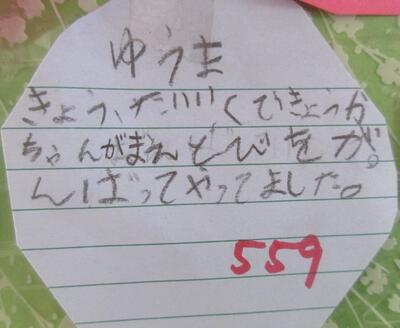 ゆうま
きょう、たいいくできょうか
ちゃんがまえとびをが
んばってやってました。
559